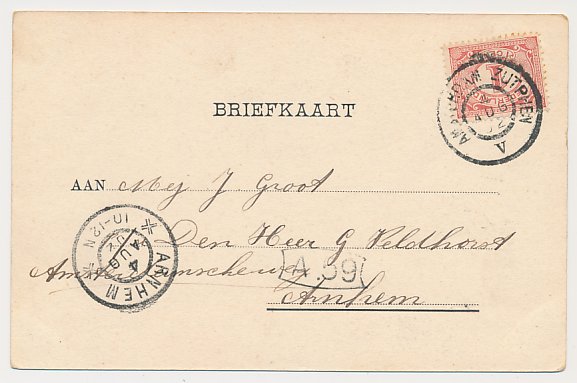 AMSTERDAM ZUTPHEN
A
BRIEFKAART
AAN Mej J Groot
Den Heer G Veldhorst
Amsterdamscheweg
A.59
Arnhem
ARNHEM
4 AUG 02
10-12 N